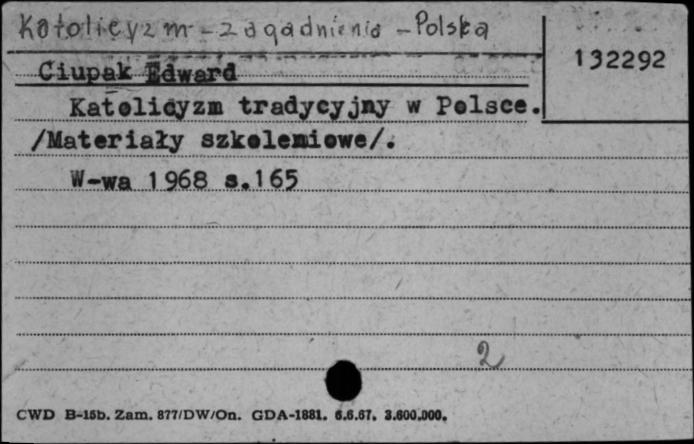 Katolicyzm - zagadnienia - Polska
132292
Ciupak Edward
Katolicyzm tradycyjny w Polsce.
/Materiały szkoleniowe/.
W-wa 1968 s.165
2
CWD B-15b. Zam. 877/DW/On. GDA-1881. 6.6.67. 3.600.000.